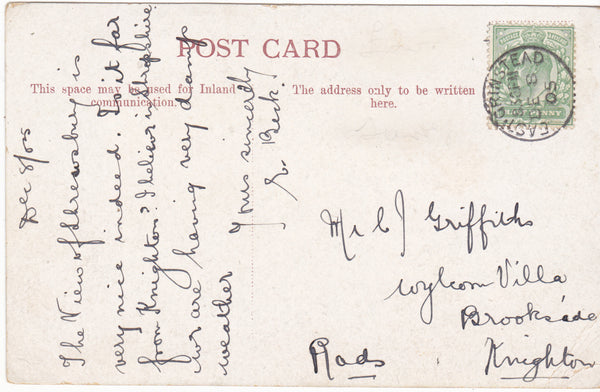 POST CARD
This space may be used for Inland
communication.
The address only to be written
here.
EAST GRINSTEAD
DE 8
05
HALFPENNY
Dec 8/05
The View of Shrewsbury is
very nice indeed. Is it far
from Knighton? I believe in Shropshire.
we are having very damp
weather
Yours sincerely
E. Beck.
Mr C J Griffiths
Wylcom Villa
Brookside
Knighton
Rads